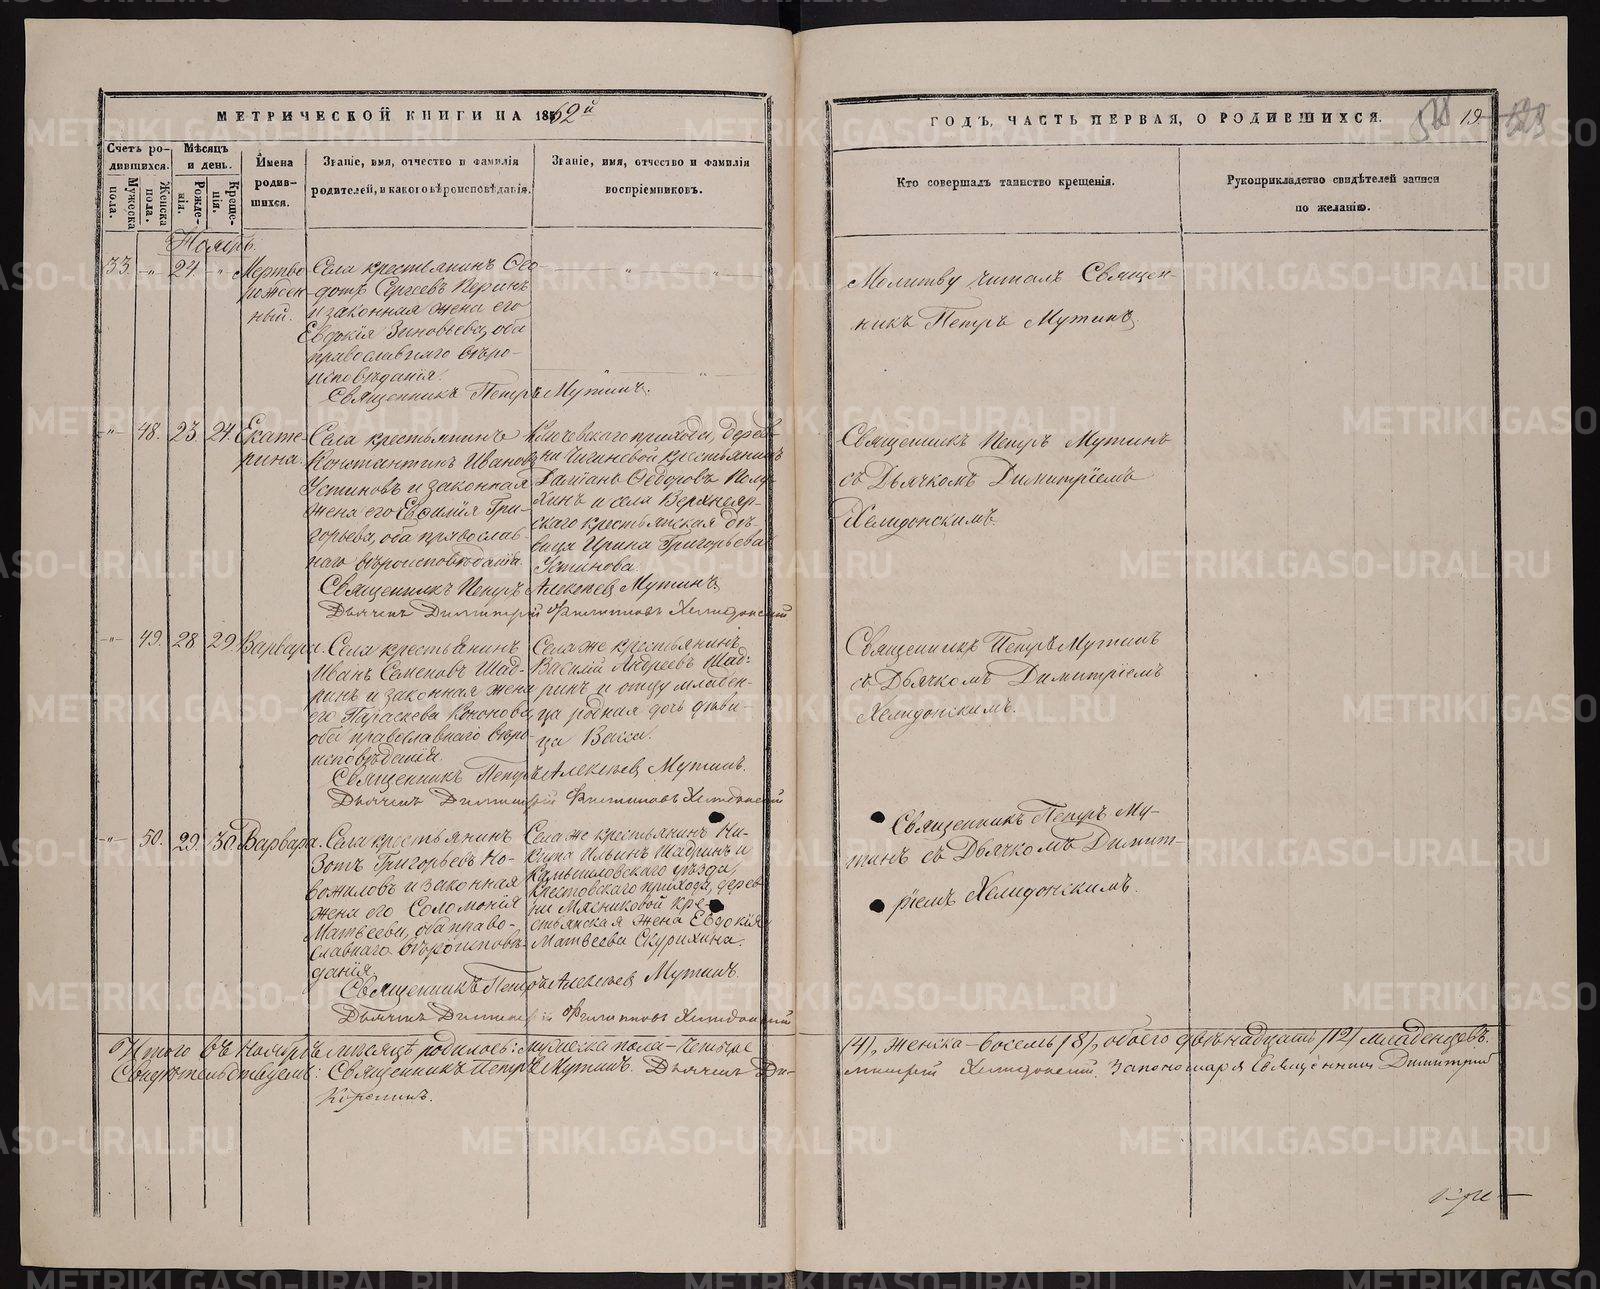 МЕТРИЧЕСКОЙ КНИГИ НА 1862й
ГОДЪ, ЧАСТЬ ПЕРВАЯ, О РОДИВШИХСЯ.
19
Счетъ родившихся.
Мужеска пола.
Женска пола.
Мѣсяцъ и день.
Рожденія.
Крещенія.
Имена родившихся.
Званіе, имя, отчество и фамилія
родителей, и какого вѣроисповѣданія.
Званіе, имя, отчество и фамилія
воспріемниковъ.
Кто совершалъ таинство крещенія.
Рукоприкладство свидѣтелей записи
по желанію.
Ноябрь.
33. „ 24 „
Мертво
рожден-
ный.
Села крестьянинъ Ѳео-
дотъ Сергеевъ
и законная жена его
Евдокія Зиновьева, оба
православнаго вѣро-
исповѣданія.
Священникъ Петръ Мутинъ.
Молитву читалъ Священ-
никъ Петръ Мутинъ.
„ 48. 23. 24.
Екате-
рина.
Села крестьянинъ
Константинъ Ивановъ
Устиновъ и законная
жена его Евфимія Гри-
горьева, оба православ-
наго вѣроисповѣданія.
Ключевскаго прихода, дерев-
ни крестьянинъ
Ѳедоровъ
и села Верхнеяр-
скаго крестьянская дѣ-
вица Ирина Григорьева
Устинова.
Священникъ Петръ Алексѣевъ Мутинъ
Дьячекъ Димитрій Филиповъ Хелидонскій
Священникъ Петръ Мутинъ
съ Дьячкомъ Димитріемъ
Хелидонскимъ.
„ 49. 28 29
Варвара.
Села крестьянинъ
Иванъ Семеновъ Шад-
ринъ и законная жена
его Параскева Кононова,
оба православнаго вѣро-
исповѣданія.
Села же крестьянинъ
Василій Андреевъ Шад-
ринъ и отцу младен-
ца родная дочь дѣви-
ца Васса.
Священникъ Петръ Алексѣевъ Мутинъ.
Дьячекъ Димитрій Филиповъ Хелидонскій
Священникъ Петръ Мутинъ
съ Дьячкомъ Димитріемъ
Хелидонскимъ.
„ 50. 29. 30.
Варвара.
Села крестьянинъ
Зотъ Григорьевъ Но-
вожиловъ и законная
жена его Соломонія
Матвеева, оба право-
славнаго вѣроисповѣ-
данія.
Села же крестьянинъ Ни-
кита Ильинъ Шадринъ и
Камышловскаго уѣзда,
Крестовскаго прихода, дерев-
ни Мясниковой кре-
стьянская жена Евдокія
Матвеева Скурихина.
Священникъ Петръ Алексѣевъ Мутинъ.
Дьячекъ Димитрій Филиповъ Хелидонскій
Священникъ Петръ Му-
тинъ съ Дьячкомъ Димит-
ріемъ Хелидонскимъ.
Итого въ Ноябрѣ мѣсяцѣ родилось: мужеска пола – четыре /4/, женска – восемь /8/, обоего двѣнадцать /12/ младенцовъ.
Свидѣтельствуемъ: Священникъ Петръ Мутинъ. Дьячекъ Ди-
митрій Хелидонскій. За пономаря Священникъ Димитрій
METRIKI.GASO-URAL.RU